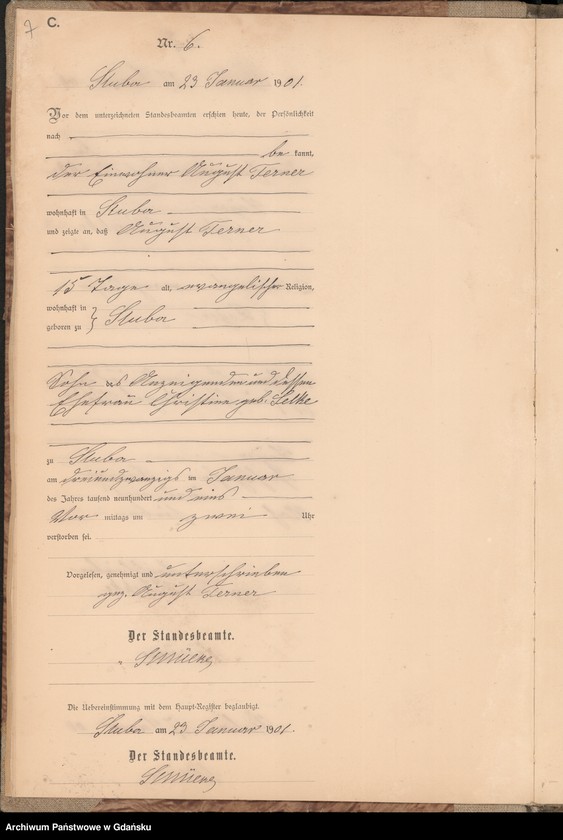 7 C.
Nr. 6.
Stuba am 23 Januar 1901.
Vor dem unterzeichneten Standesbeamten erschien heute, der Persönlichkeit
nach
be kannt,
der Einwohner August Ferner
wohnhaft in Stuba
und zeigte an, daß August Ferner
15 Tage alt, evangelischer Religion,
wohnhaft in
geboren zu } Stuba
Sohn des Anzeigenden und dessen
Ehefrau Christine geb. Selke
zu Stuba
am dreiundzwanzigs ten Januar
des Jahres tausend neunhundert und eins
Vor mittags um zwei Uhr
verstorben sei.
Vorgelesen, genehmigt und unterschrieben
gez. August Ferner
Der Standesbeamte.
Die Uebereinstimmung mit dem Haupt-Register beglaubigt.
Stuba am 23 Januar 1901.
Der Standesbeamte.
Archiwum Państwowe w Gdańsku